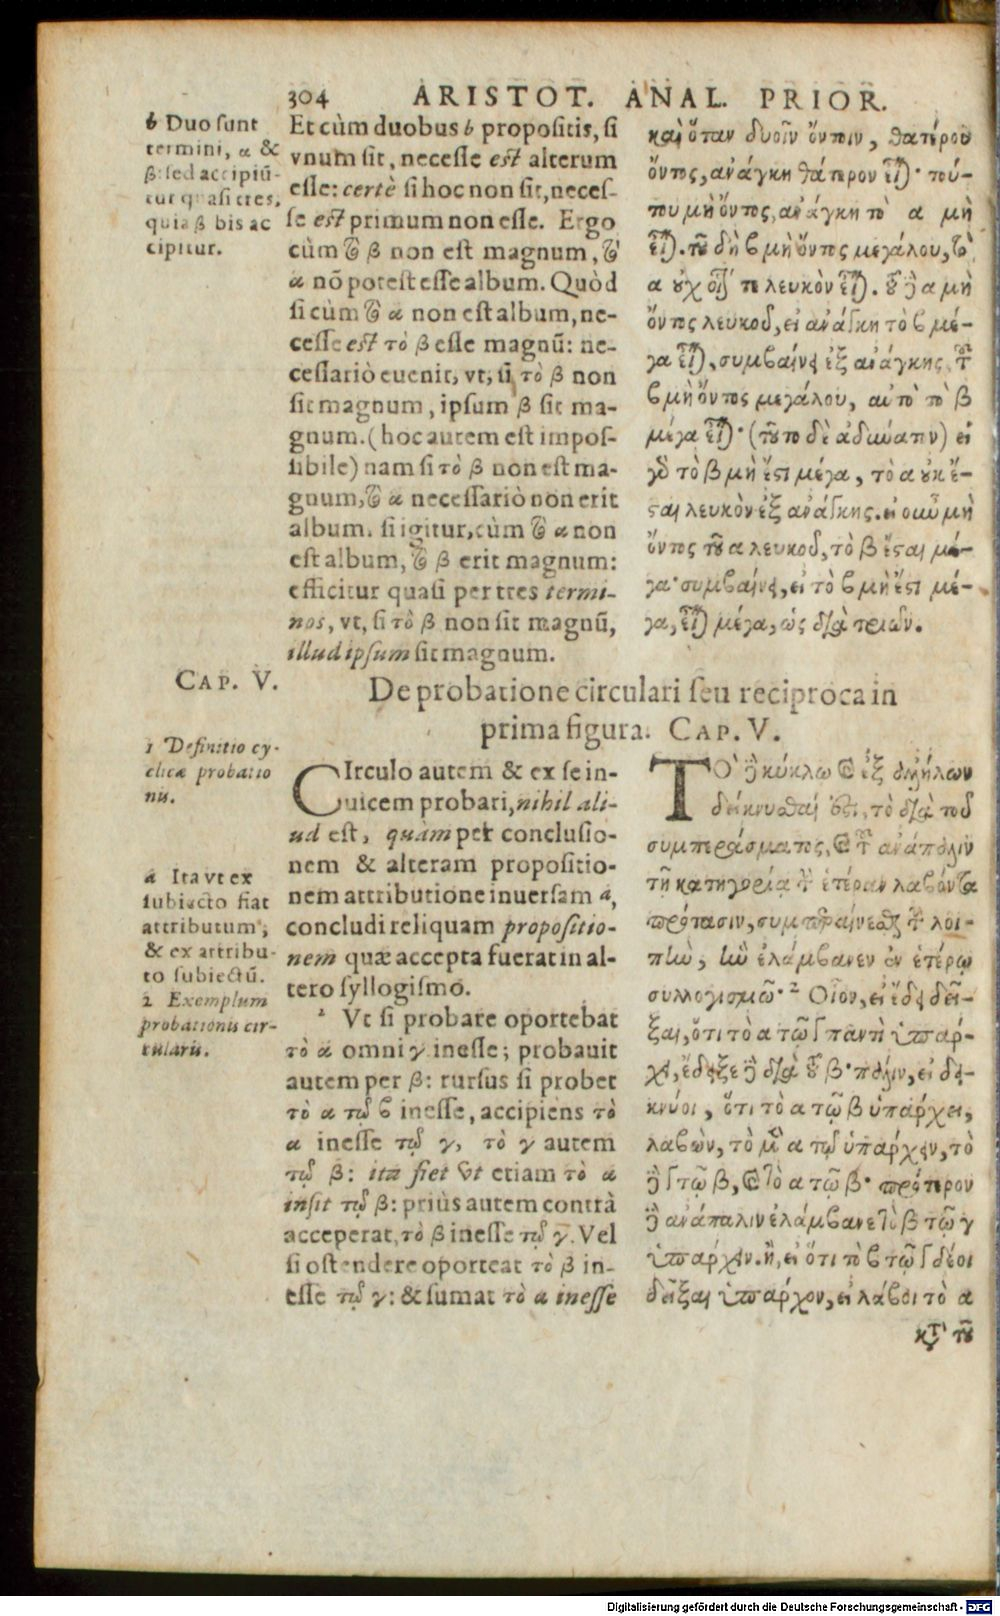 304 ARISTOT. ANAL. PRIOR.
b Duo sunt
termini, α &
β: sed accipiū-
tur quasi tres,
quia β bis ac
cipitur.
Et cùm duobus b propositis, si
vnum sit, necesse est alterum
esse: certè si hoc non sit, neces-
se est primum non esse. Ergo
cùm τὸ β non est magnum, τὸ
α nō potest esse album. Quòd
si cùm τὸ α non est album, ne-
cesse est τὸ β esse magnū: ne-
cessariò euenit, vt, si τὸ β non
sit magnum, ipsum β sit ma-
gnum. (hoc autem est impos-
sibile) nam si τὸ β non est ma-
gnum, τὸ α necessariò non erit
album. si igitur, cùm τὸ α non
est album, τὸ β erit magnum:
efficitur quasi per tres termi-
nos, vt, si τὸ β non sit magnū,
illud ipsum sit magnum.
καὶ ὅταν δυοῖν ὄντοιν, θατέρου
ὄντος, ἀνάγκη θάτερον εἶναι· τού-
του μὴ ὄντος, ἀνάγκη τὸ α μὴ
εἶναι. τοῦ δὴ β μὴ ὄντος μεγάλου, τὸ
α οὐχ οἷόν τε λευκὸν εἶναι. τοῦ δὲ α μὴ
ὄντος λευκοῦ, εἰ ἀνάγκη τὸ β μέ-
γα εἶναι, συμβαίνει ἐξ ἀνάγκης, τοῦ
β μὴ ὄντος μεγάλου, αὐτὸ τὸ β
μέγα εἶναι· (τοῦτο δὲ ἀδύνατον) εἰ
γὰρ τὸ β μὴ ἔστι μέγα, τὸ α οὐκ ἔ-
σται λευκὸν ἐξ ἀνάγκης. εἰ οὖν μὴ
ὄντος τοῦ α λευκοῦ, τὸ β ἔσται μέ-
γα· συμβαίνει, εἰ τὸ β μὴ ἔστι μέ-
γα, εἶναι μέγα, ὡς διὰ τριῶν.
CAP. V.
De probatione circulari seu reciproca in
prima figura. CAP. V.
1 Definitio cy-
clicæ probatio
nis.
a Ita vt ex
subiecto fiat
attributum,
& ex attribu-
to subiectū.
2 Exemplum
probationis cir-
cularis.
CIrculo autem & ex se in-
uicem probari, nihil ali-
ud est, quam per conclusio-
nem & alteram propositio-
nem attributione inuersam a,
concludi reliquam propositio-
nem quæ accepta fuerat in al-
tero syllogismo.
2 Vt si probare oportebat
τὸ α omni γ inesse; probauit
autem per β: rursus si probet
τὸ α τῷ β inesse, accipiens τὸ
α inesse τῷ γ, τὸ γ autem
τῷ β: ita fiet vt etiam τὸ α
insit τῷ β: priùs autem contrà
acceperat, τὸ β inesse τῷ γ. Vel
si ostendere oporteat τὸ β in-
esse τῷ γ: & sumat τὸ α inesse
ΤΟ' δὲ κύκλῳ καὶ ἐξ ἀλλήλων
δείκνυσθαί ἐστι, τὸ διὰ τοῦ
συμπεράσματος, καὶ τοῦ ἀνάπαλιν
τῇ κατηγορίᾳ τὴν ἑτέραν λαβόντα
πρότασιν, συμπεράνεσθαι τὴν λοι-
πὴν, ἣν ἐλάμβανεν ἐν ἑτέρῳ
συλλογισμῷ· 2 Οἷον, εἰ ἔδει δεῖ-
ξαι, ὅτι τὸ α τῷ γ παντὶ ὑπάρ-
χει, ἔδειξε δὲ διὰ τοῦ β· πάλιν, εἰ δει-
κνύοι, ὅτι τὸ α τῷ β ὑπάρχει,
λαβὼν, τὸ μὲν α τῷ γ ὑπάρχειν, τὸ
δὲ γ τῷ β, καὶ τὸ α τῷ β· πρότερον
δὲ ἀνάπαλιν ἐλάμβανε τὸ β τῷ γ
ὑπάρχειν. ἢ, εἰ ὅτι τὸ β τῷ γ δέοι
δεῖξαι ὑπάρχον, εἰ λάβοι τὸ α
κατὰ τοῦ
Digitalisierung gefördert durch die Deutsche Forschungsgemeinschaft - DFG